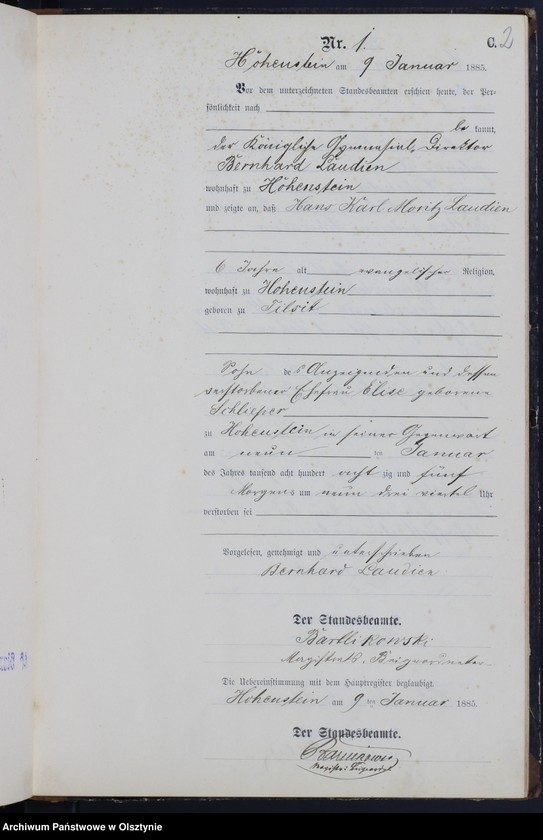 C. 2
Nr. 1.
Hohenstein am 9 Januar 1885.
Vor dem unterzeichneten Standesbeamten erschien heute, der Per-
sönlichkeit nach
be kannt,
der Königliche Gymnasial-Direktor
Bernhard Laudien
wohnhaft zu Hohenstein
und zeigte an, daß Hans Karl Moritz Laudien
6 Jahre alt evangelischer Religion,
wohnhaft zu Hohenstein
geboren zu Tilsit
Sohn des Anzeigenden und dessen
verstorbener Ehefrau Elise geborene
Schlieper
zu Hohenstein in seiner Gegenwart
am neun ten Januar
des Jahres tausend acht hundert acht zig und fünf
Morgens um neun drei viertel Uhr
verstorben sei
Vorgelesen, genehmigt und unterschrieben
Bernhard Laudien
Der Standesbeamte.
Bartlikowski
Magistrats-Beigeordneter
Die Uebereinstimmung mit dem Hauptregister beglaubigt.
Hohenstein am 9 ten Januar 1885.
Der Standesbeamte.
Archiwum Państwowe w Olsztynie